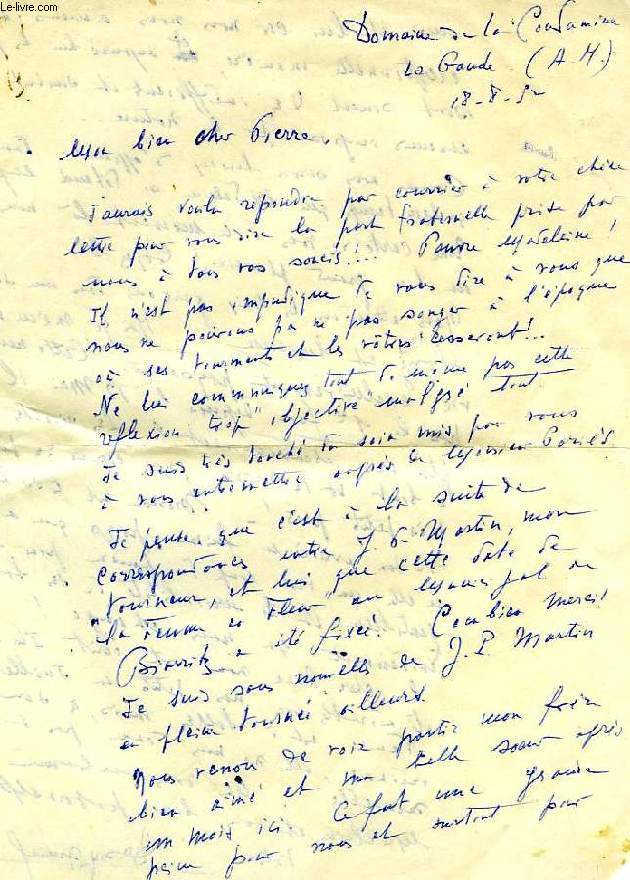 Le-livre.com
Domaine de la Condamine
La Gaude (A.M.)
18-8-52
Mon bien cher Pierre,
J'aurais voulu répondre par courrier à votre chère
lettre pour vous dire la part fraternelle prise par
nous à tous vos soucis!... Pauvre Madeleine!
Il n'est pas impudique de vous dire à vous que
nous ne pouvons pas ne pas songer à l'époque
où ses tourments et les vôtres cesseront!..
Ne lui communiquez tout de même pas cette
réflexion "trop" objective malgré tout.
Je suis très touché du soin mis par vous
à vous entremettre auprès de Monsieur
Je pense que c'est à la suite de
correspondances entre J. P. Martin, mon
"tourneur", et lui que cette date de
"la Femme en Fleur" au municipal de
Biarritz a été fixée. Combien merci!
Je suis sans nouvelles de J. P. Martin
en pleine tournée ailleurs.
Nous venons de voir partir mon frère
bien aimé et ma belle soeur après
un mois ici. Ce fut une grande
peine pour nous et surtout pour